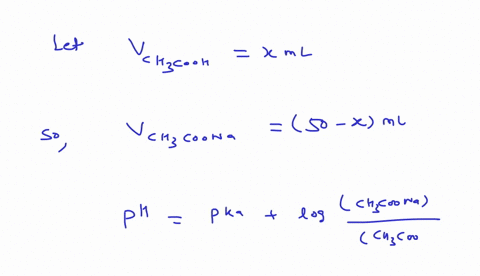 Let V_CH3COOH = x mL
So, V_CH3COONa = (50 - x) mL
PH = Pka + log (CH3COONa) / (CH3COO